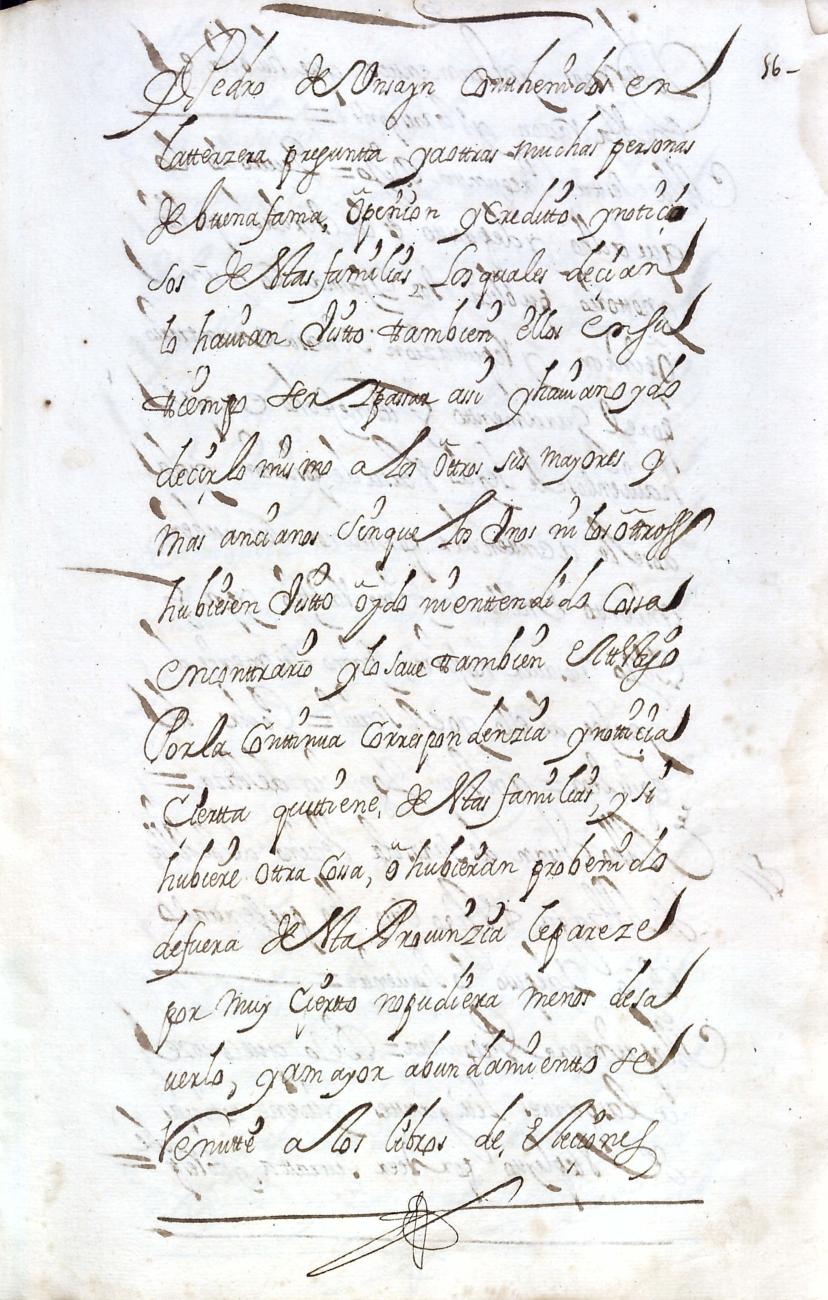 56-
Pedro de Unsayn Conthenidos en
latterzera preguntta yaottras muchas personas
de buena fama, Openion y Creditto ynoticio
sos de Estas familias Los quales decian
lo havian Vistto ttambien ellos en su
ttiempo ser y passar assi yhavian oydo
decirlo mismo a los Ottros sus mayores y
mas ancianos sin que los Unos ni los ottross
hubiesen Vistto Oydo ni enttendido Cossa
encontrario ylo save ttambien el ttesttigo
Por la Conttinua Correspondenzia ynotticia
Ciertta quettiene, de Estas familias, y si
hubiere Ottra Cosa, o hubieran probenido
defuera de Esta Provinzia lepareze
por muy Ciertto nopudiera menos desa
verlo, yamayor abundamientto se
Remitte a los libros de, Elecciones